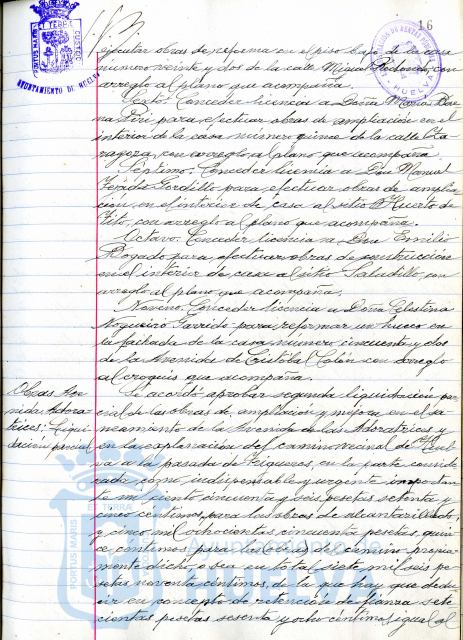 16
PORTUS MARIS ET TERRE CUSTODIA
AYUNTAMIENTO DE HUELVA
HUELVA
ejecutar obras de reforma en el piso bajo de la casa
número veinte y dos de la calle Miguel Redondo, con
arreglo al plano que acompaña.
Sexto. Conceder licencia a Doña María
para efectuar obras de ampliación en el
interior de la casa número quince de la calle Za-
ragoza, con arreglo al plano que acompaña.
Séptimo. Conceder licencia a Don Manuel
Gordillo para efectuar obras de amplia-
ción, en el interior de casa al sitio Huerto de
Tito, con arreglo al plano que acompaña.
Octavo. Conceder licencia a Don Emilio
Bogado para efectuar obras de construcción
en el interior de casa al sitio Saladillo, con
arreglo al plano que acompaña.
Noveno. Conceder licencia a Doña Celestina
Nogueiro Garrido para reformar un hueco en
la fachada de la casa número cincuenta y dos
de la Avenida de Cristóbal Colón con arreglo
al croquis que acompaña.
Obras Ave-
nida Adora-
trices: Liqui-
dación parcial
Se acordó aprobar segunda liquidación par-
cial de las obras de ampliación y mejora en el sa-
neamiento de la Avenida de las Adoratrices y
en la explanación del camino vecinal de Huel-
va a la pasada de Figueros, en la parte conside-
rada como indispensable y urgente importan-
te mil ciento cincuenta y seis pesetas setenta y
cinco céntimos, para las obras de alcantarillado,
y cinco mil ochocientas cincuenta pesetas, quin-
ce céntimos para las obras de camino propia-
mente dicho, o sea en total siete mil seis pe-
setas noventa céntimos, de la que hay que dedu-
cir en concepto de retención de fianza sete-
cientas pesetas sesenta y ocho céntimos, igual al
PORTUS MARIS ET TERRE
Ayuntamiento de
HUELVA